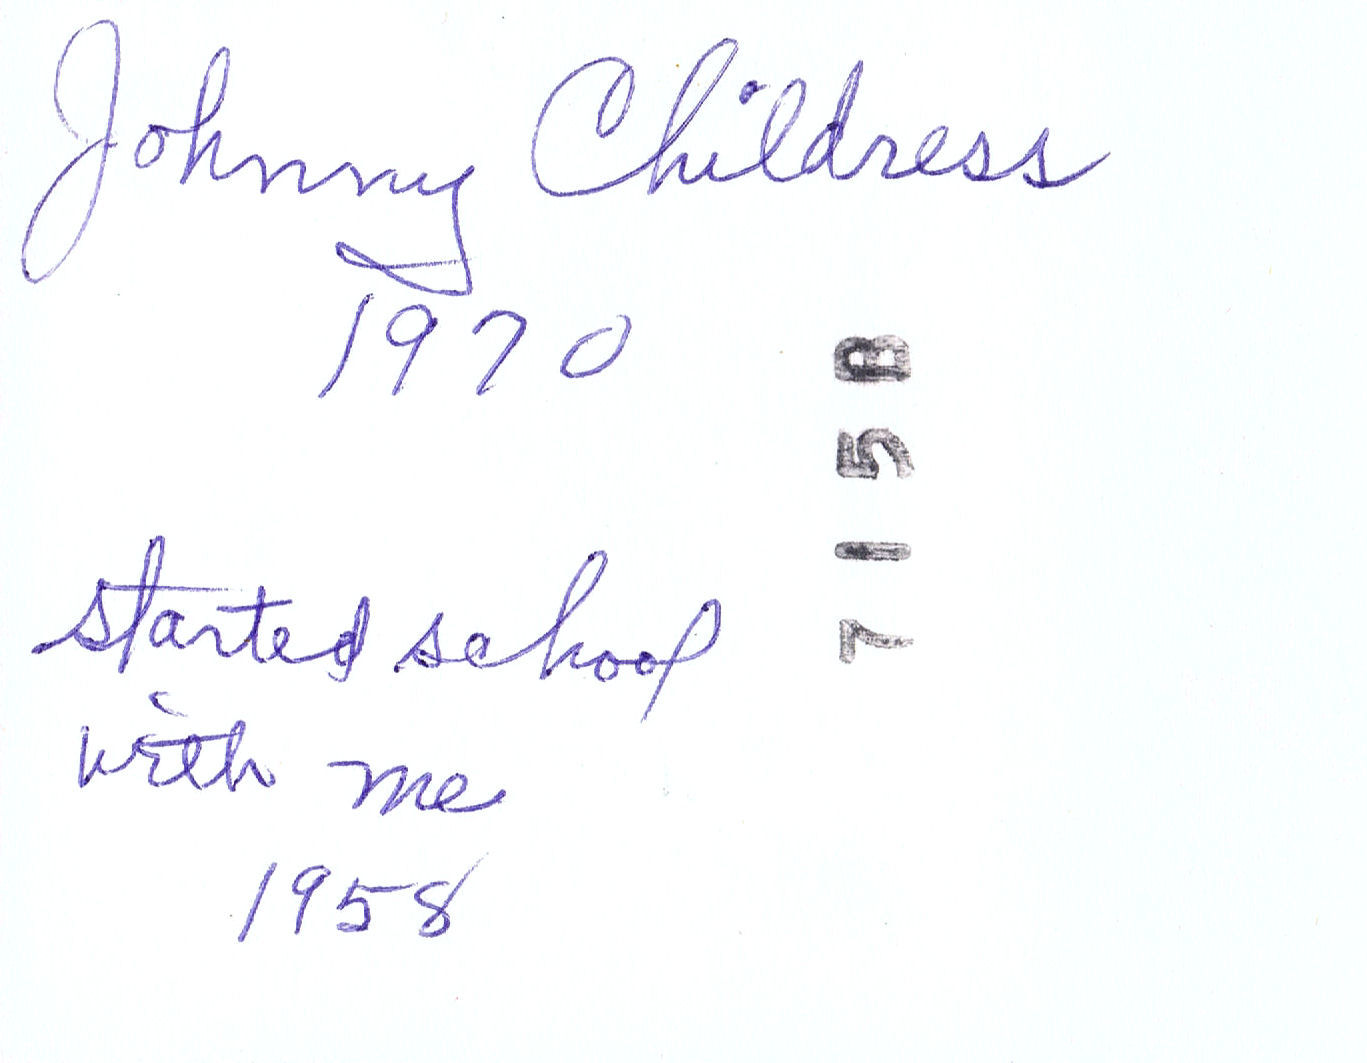 Johnny Childress
1970
7115B
started school
with me
1958